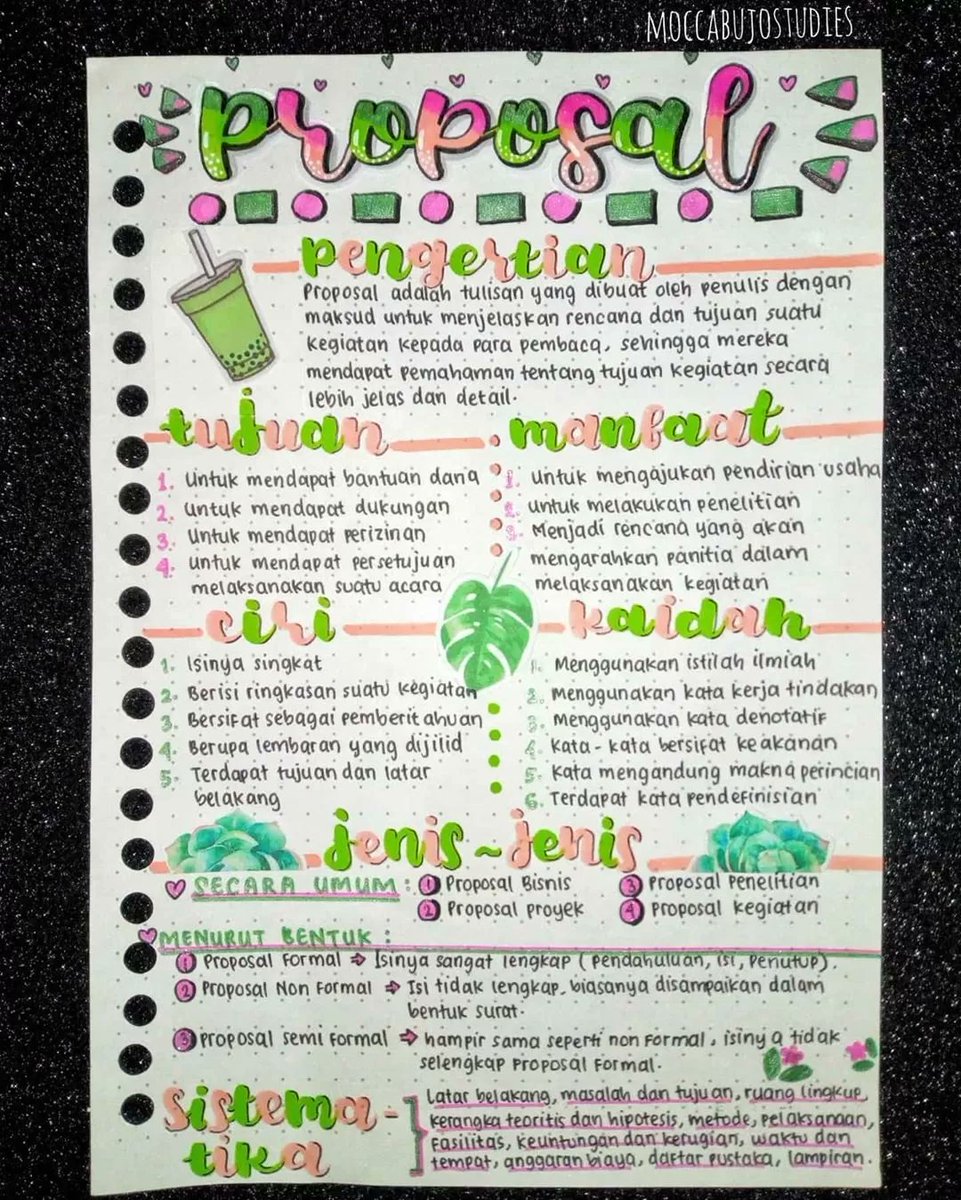 MOCCABUJOSTUDIES
proposal
pengertian
Proposal adalah tulisan yang dibuat oleh penulis dengan
maksud untuk menjelaskan rencana dan tujuan suatu
kegiatan kepada para pembaca, sehingga mereka
mendapat pemahaman tentang tujuan kegiatan secara
lebih jelas dan detail.
tujuan
1. Untuk mendapat bantuan dana
2. Untuk mendapat dukungan
3. Untuk mendapat perizinan
4. Untuk mendapat persetujuan
melaksanakan suatu acara
manfaat
1. untuk mengajukan pendirian usaha
2. untuk melakukan penelitian
3. Menjadi rencana yang akan
mengarahkan panitia dalam
melaksanakan kegiatan
ciri
1. Isinya singkat
2. Berisi ringkasan suatu kegiatan
3. Bersifat sebagai pemberitahuan
4. Berupa lembaran yang dijilid
5. Terdapat tujuan dan latar
belakang
kaidah
1. Menggunakan istilah ilmiah
2. Menggunakan kata kerja tindakan
3. Menggunakan kata denotatif
4. Kata-kata bersifat keakanan
5. Kata mengandung makna perincian
6. Terdapat kata pendefinisian
jenis ~ jenis
SECARA UMUM : 1 Proposal Bisnis 3 Proposal Penelitian
2 Proposal proyek 4 Proposal kegiatan
MENURUT BENTUK :
1 Proposal Formal ⇒ Isinya sangat lengkap (pendahuluan, isi, penutup).
2 Proposal Non Formal ⇒ Isi tidak lengkap, biasanya disampaikan dalam
bentuk surat.
3 Proposal semi Formal ⇒ hampir sama seperti non formal, isinya tidak
selengkap proposal formal.
sistema-
tika
Latar belakang, masalah dan tujuan, ruang lingkup,
kerangka teoritis dan hipotesis, metode, pelaksanaan,
Fasilitas, keuntungan dan kerugian, waktu dan
tempat, anggaran biaya, daftar pustaka, lampiran.